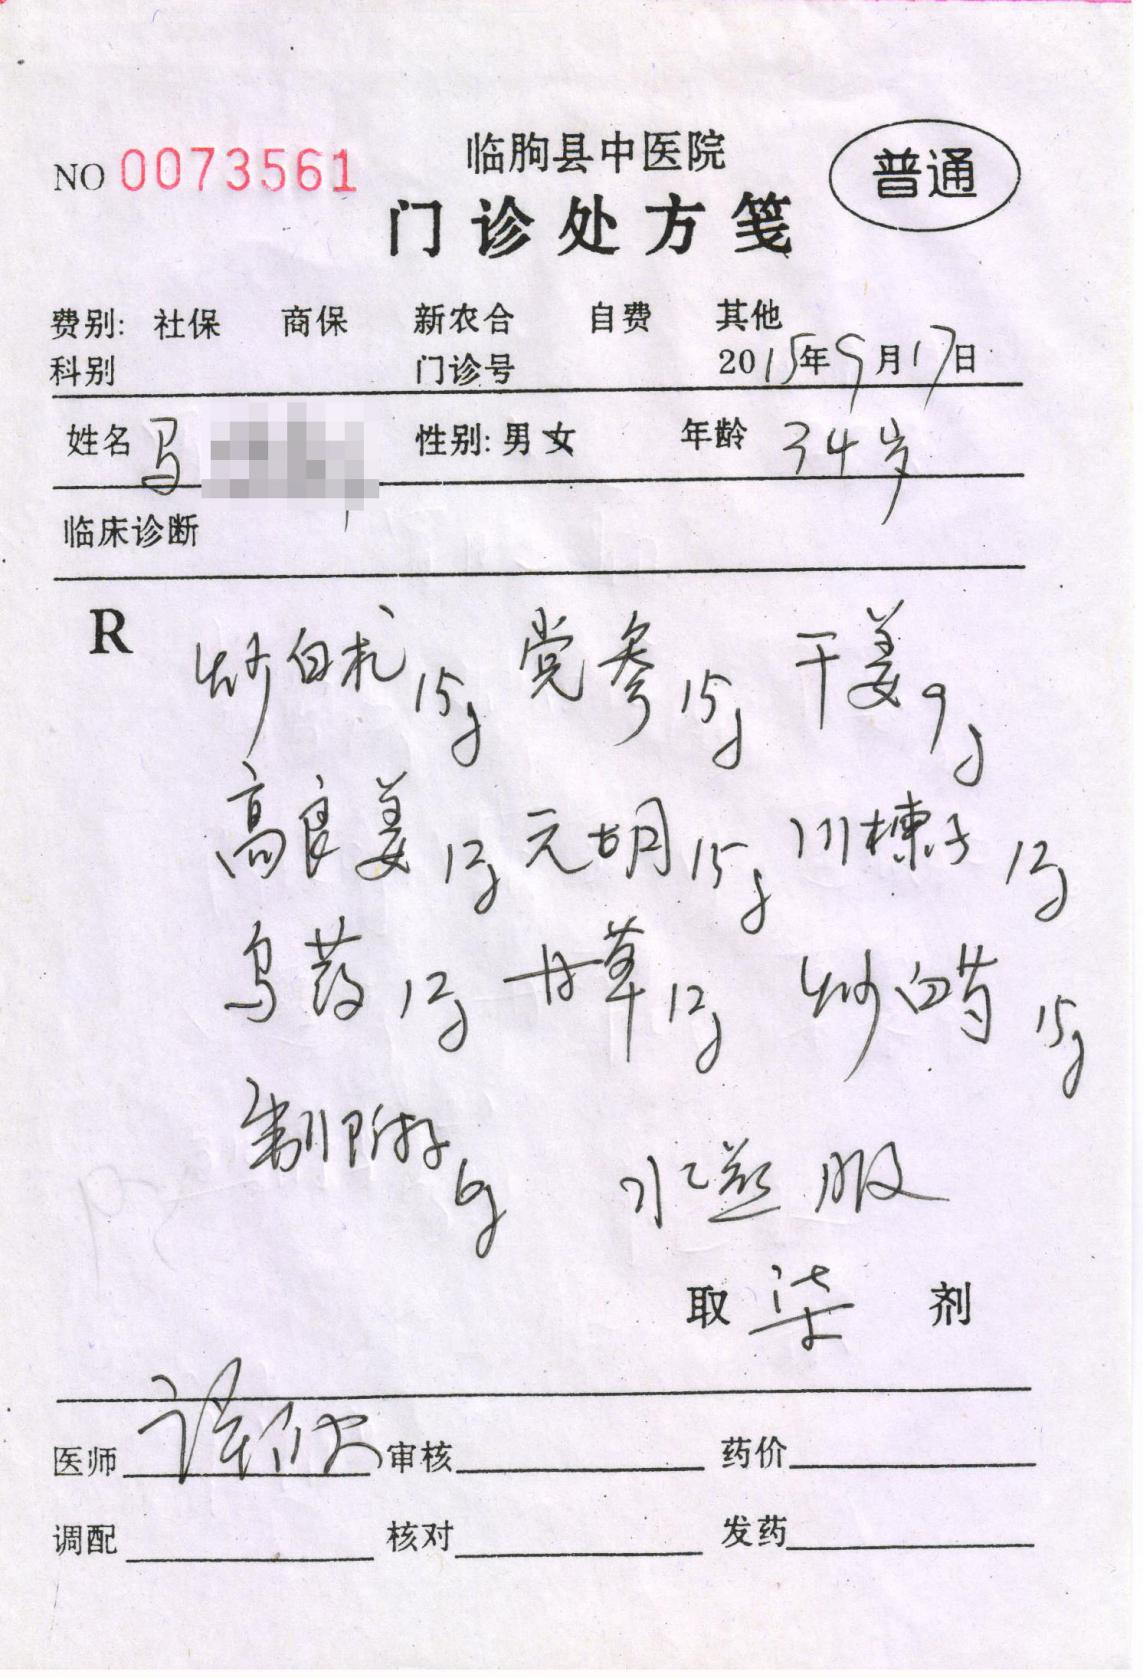 临朐县中医院
NO 0073561
普通
门诊处方笺
费别: 社保 商保 新农合 自费 其他
科别 门诊号 2015年9月17日
姓名 马 性别: 男 女 年龄 34岁
临床诊断
R
炒白术 15g 党参 15g 干姜 9g
高良姜 12g 元胡 15g 川楝子 12g
乌药 12g 甘草 12g 炒白芍 15g
制附子 6g 水煎服
取 柒 剂
医师 审核 药价
调配 核对 发药